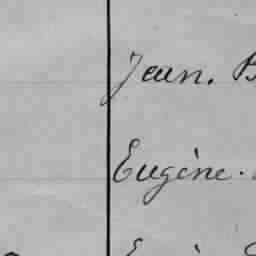 Jean. B
Eugène.